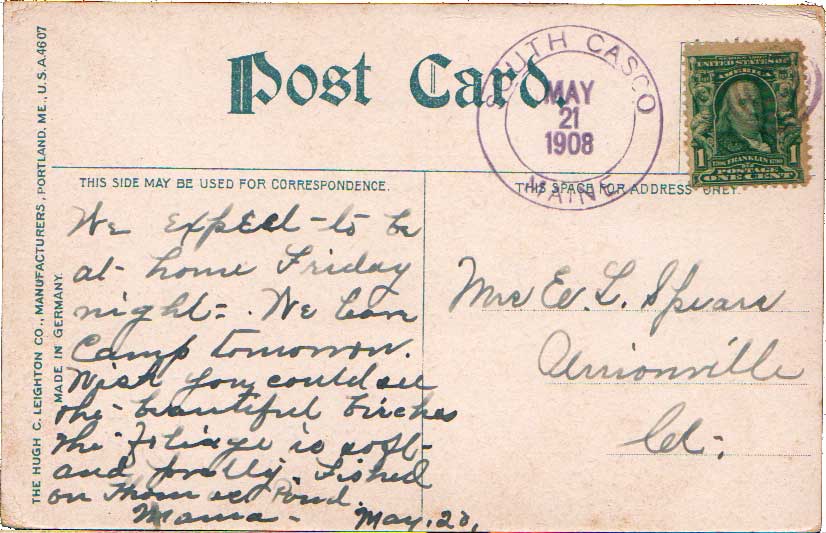 THE HUGH C. LEIGHTON CO., MANUFACTURERS, PORTLAND, ME., U.S.A. 4607
MADE IN GERMANY.
Post Card.
SOUTH CASCO
MAY
21
1908
MAINE
SERIES 1902
UNITED STATES OF
AMERICA
1706 FRANKLIN 1790
1 1
POSTAGE
ONE CENT
THIS SIDE MAY BE USED FOR CORRESPONDENCE.
We expect to be
at home Friday
night. We
Camp tomorrow.
Wish you could see
the beautiful birches
the foliage is soft
and pretty. Fished
on Thomas Pond.
Mama - May. 20,
THIS SPACE FOR ADDRESS ONLY.
Mrs E. L. Spears
Unionville
Ct.